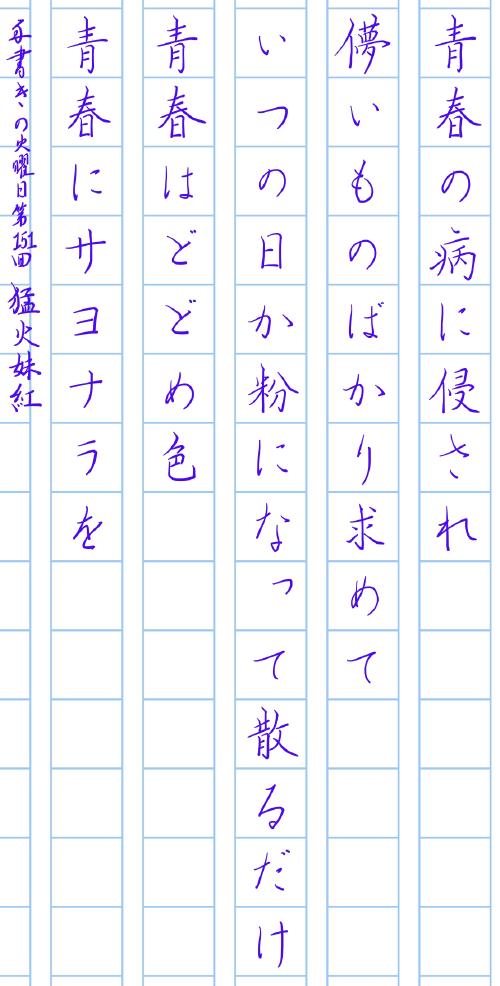 青春の病に侵され
儚いものばかり求めて
いつの日か粉になって散るだけ
青春はどどめ色
青春にサヨナラを
手書きの火曜日第151回 猛火妹紅